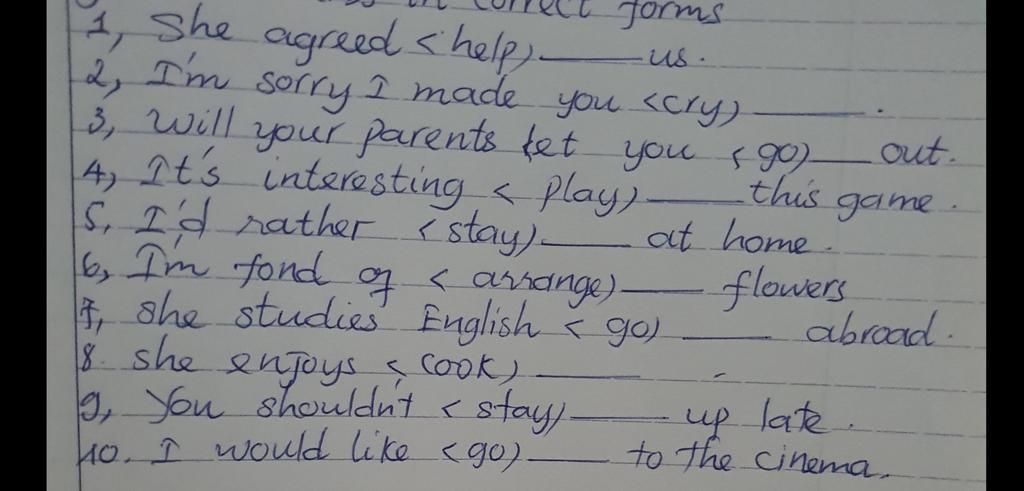 in correct forms
1, She agreed <help) ____ us.
2, I'm sorry I made you <cry) ____.
3, Will your parents let you <go) ____ out.
4, It's interesting < play) ____ this game.
5, I'd rather <stay) ____ at home.
6, I'm fond of < arrange) ____ flowers
7, she studies English < go) ____ abroad.
8. she enjoys < cook) ____ -
9, You shouldn't < stay) ____ up late.
10. I would like <go) ____ to the cinema.